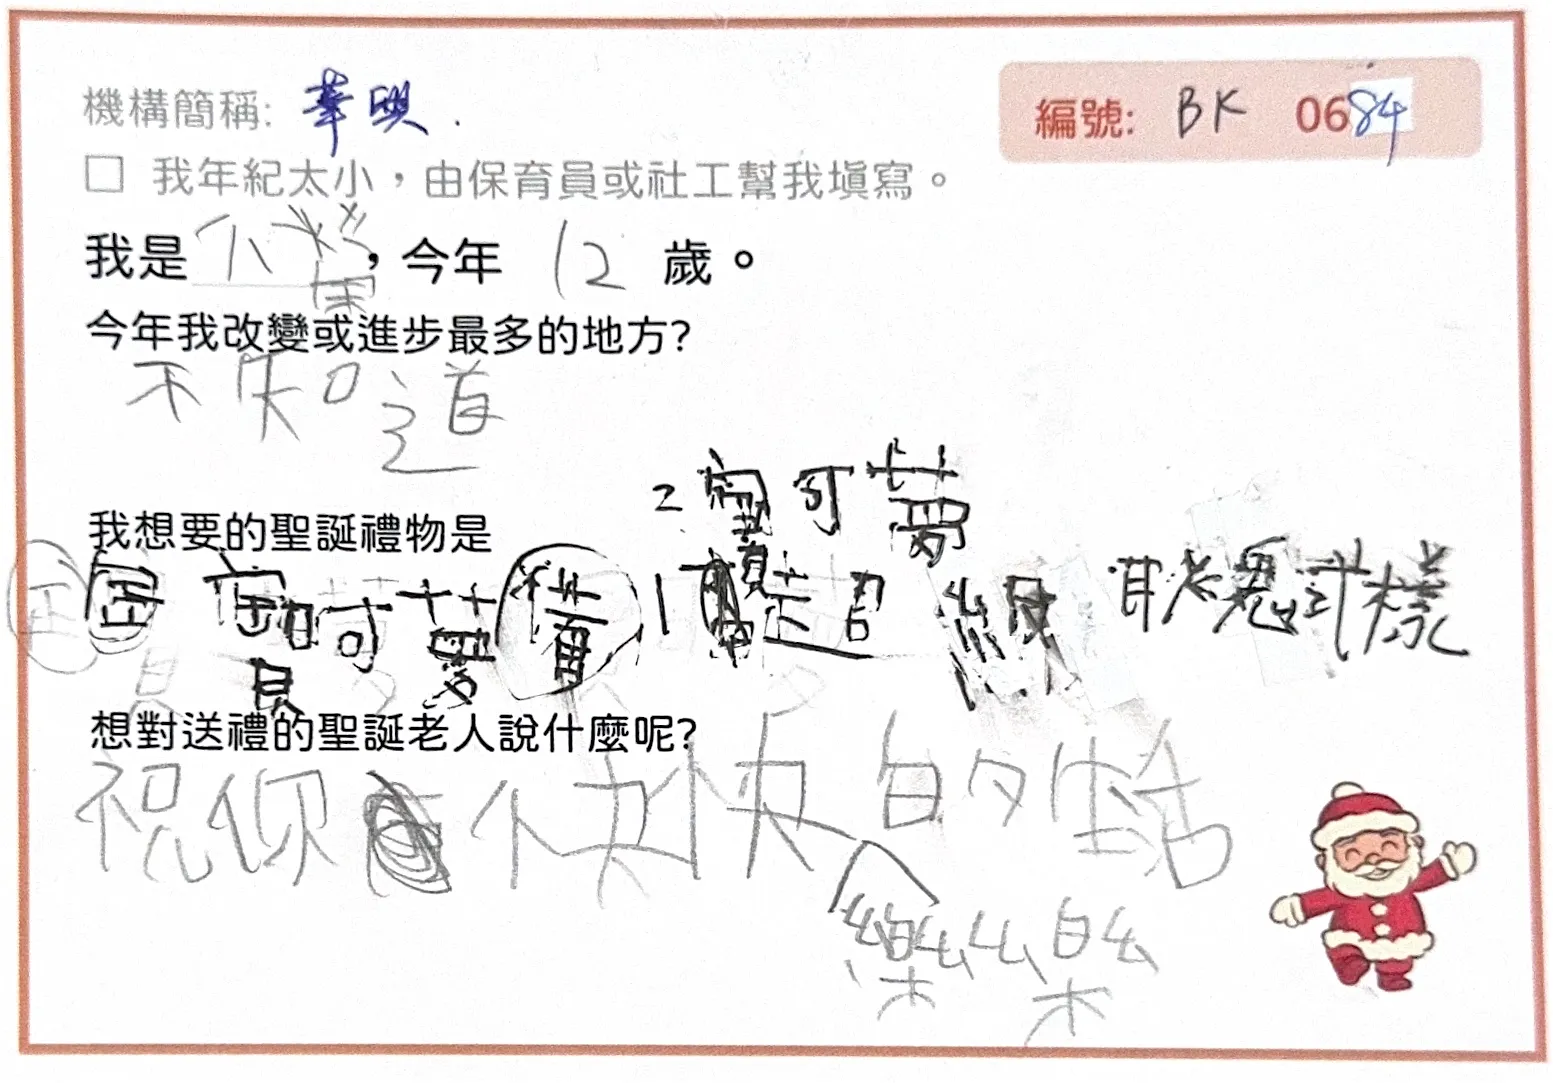 機構簡稱: 華興.
編號: BK 0684
□ 我年紀太小，由保育員或社工幫我填寫。
我是小, 今年 12 歲。
今年我改變或進步最多的地方?
不知道
2. 寶可夢
我想要的聖誕禮物是
寶可夢 1 超 級 耿鬼 式樣
想對送禮的聖誕老人說什麼呢?
祝你 快快樂樂的生活